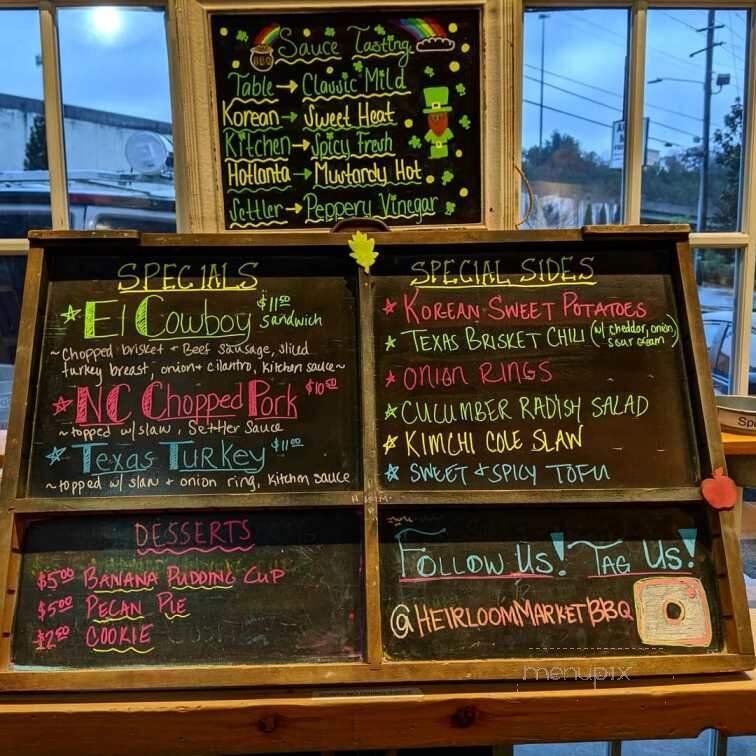 BBQ
Sauce Tasting
Table → Classic Mild
Korean → Sweet Heat
Kitchen → Spicy Fresh
Hotlanta → Mustardy Hot
Settler → Peppery Vinegar
SPECIALS
El Cowboy $11.50
sandwich
~chopped brisket + Beef Sausage, sliced
turkey breast, onion + cilantro, kitchen sauce~
NC Chopped Pork $10.50
~topped w/ slaw, Settler Sauce
Texas Turkey $11.00
~topped w/ slaw + onion ring, kitchen sauce
SPECIAL SIDES
KOREAN SWEET POTATOES
TEXAS BRISKET CHILI (w/ cheddar, onion,
sour cream)
ONION RINGS
CUCUMBER RADISH SALAD
KIMCHI COLE SLAW
SWEET + SPICY TOFU
DESSERTS
$5.00 BANANA PUDDING CUP
$5.00 PECAN PIE
$2.50 COOKIE
FOLLOW US! TAG US!
@HEIRLOOMMARKETBBQ
menupix